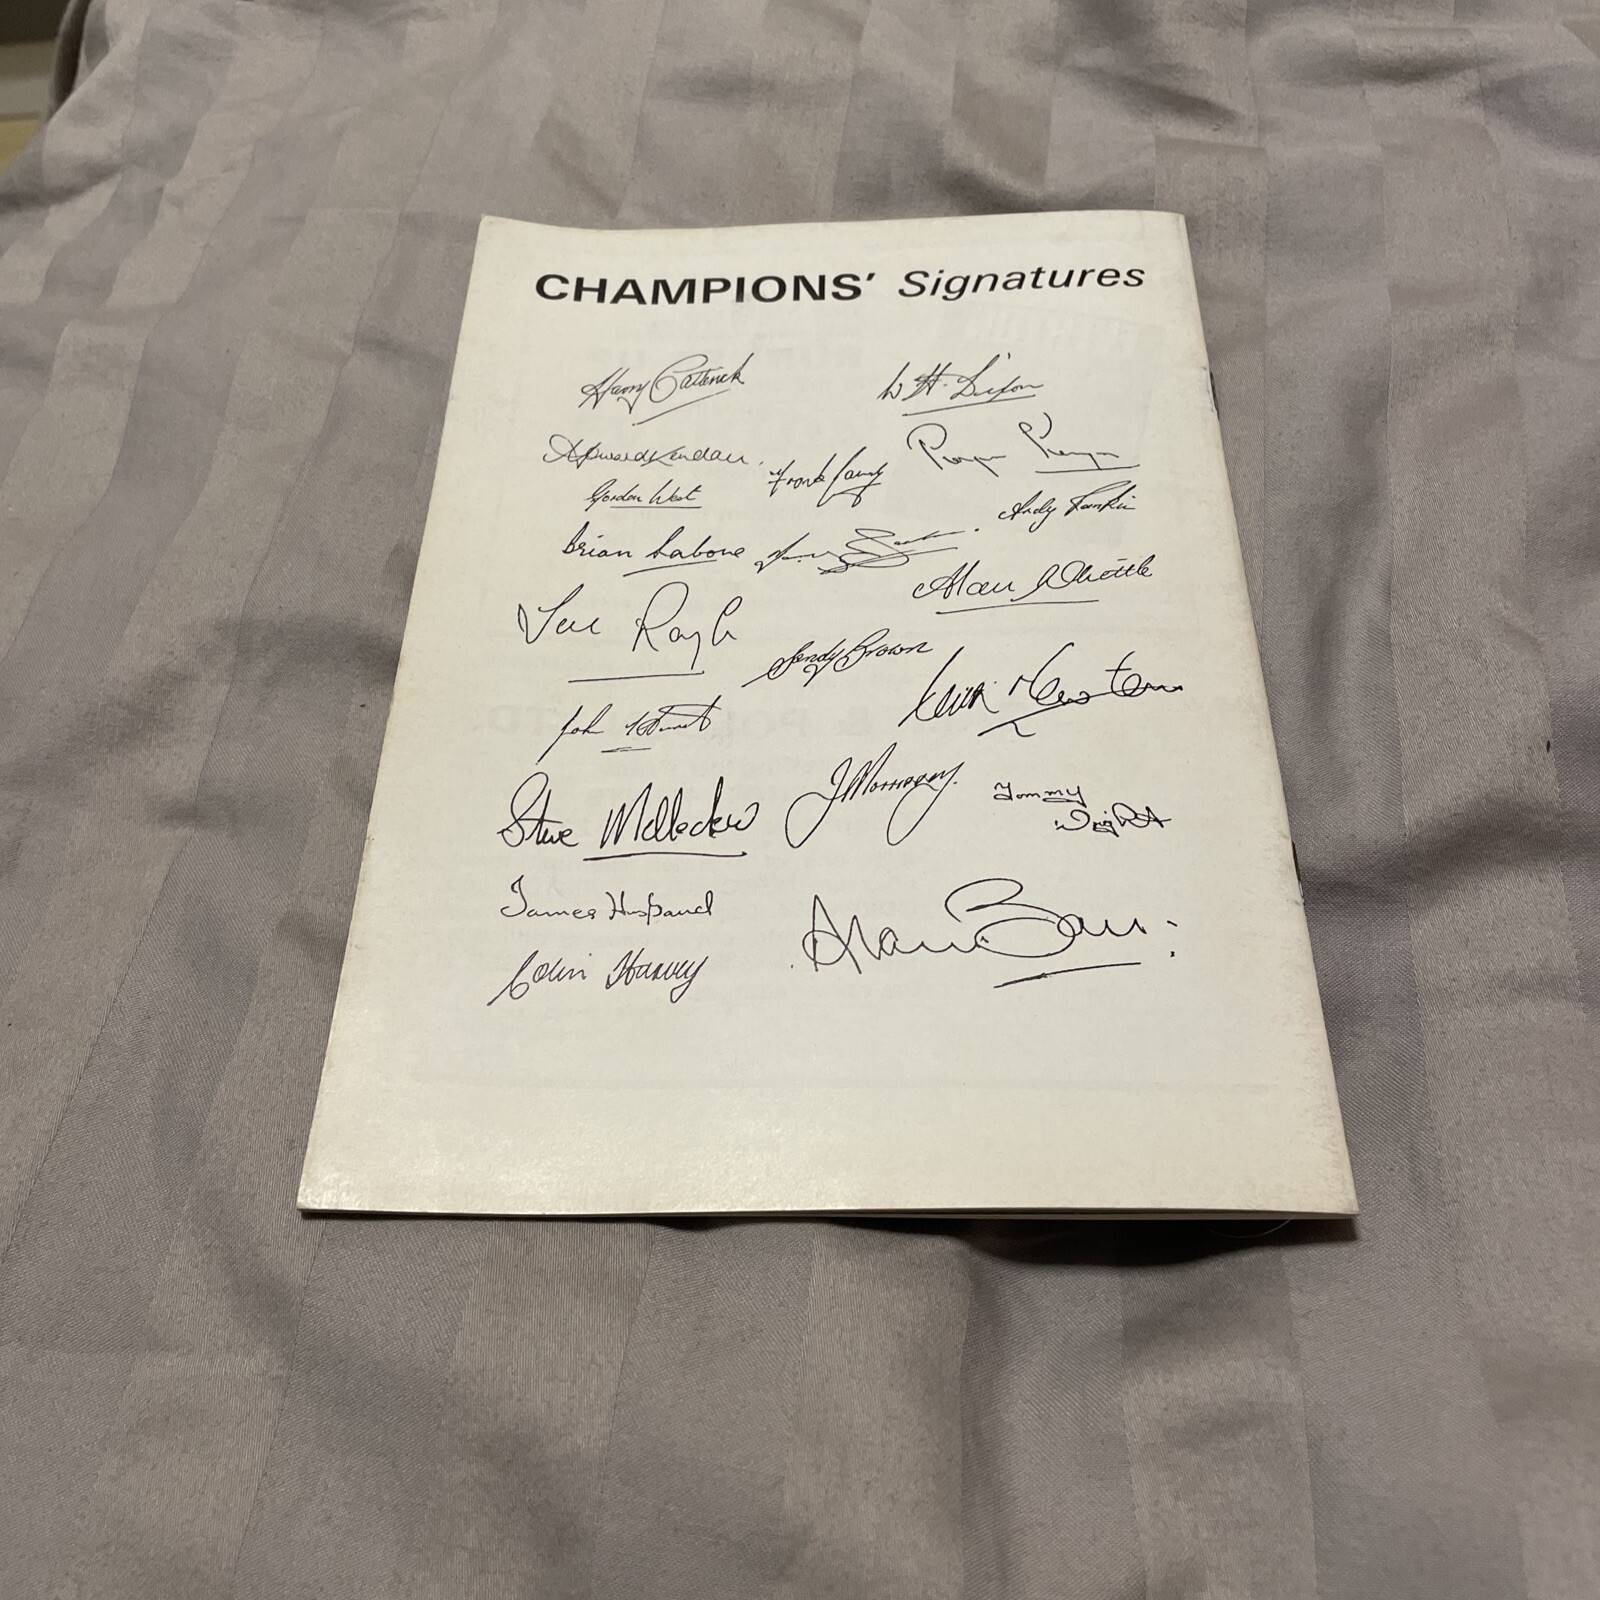 CHAMPIONS' Signatures
Harry Catterick
W H. Dixon
Howard Kendall.
Gordon West
Andy Rankin
Brian Labone
Alan Whittle
Joe Royle
Sandy Brown
Keith Newton
John Hurst
Steve Melledew
J Morrissey.
Tommy
Wright
James Husband
Colin Harvey
Alan Ball